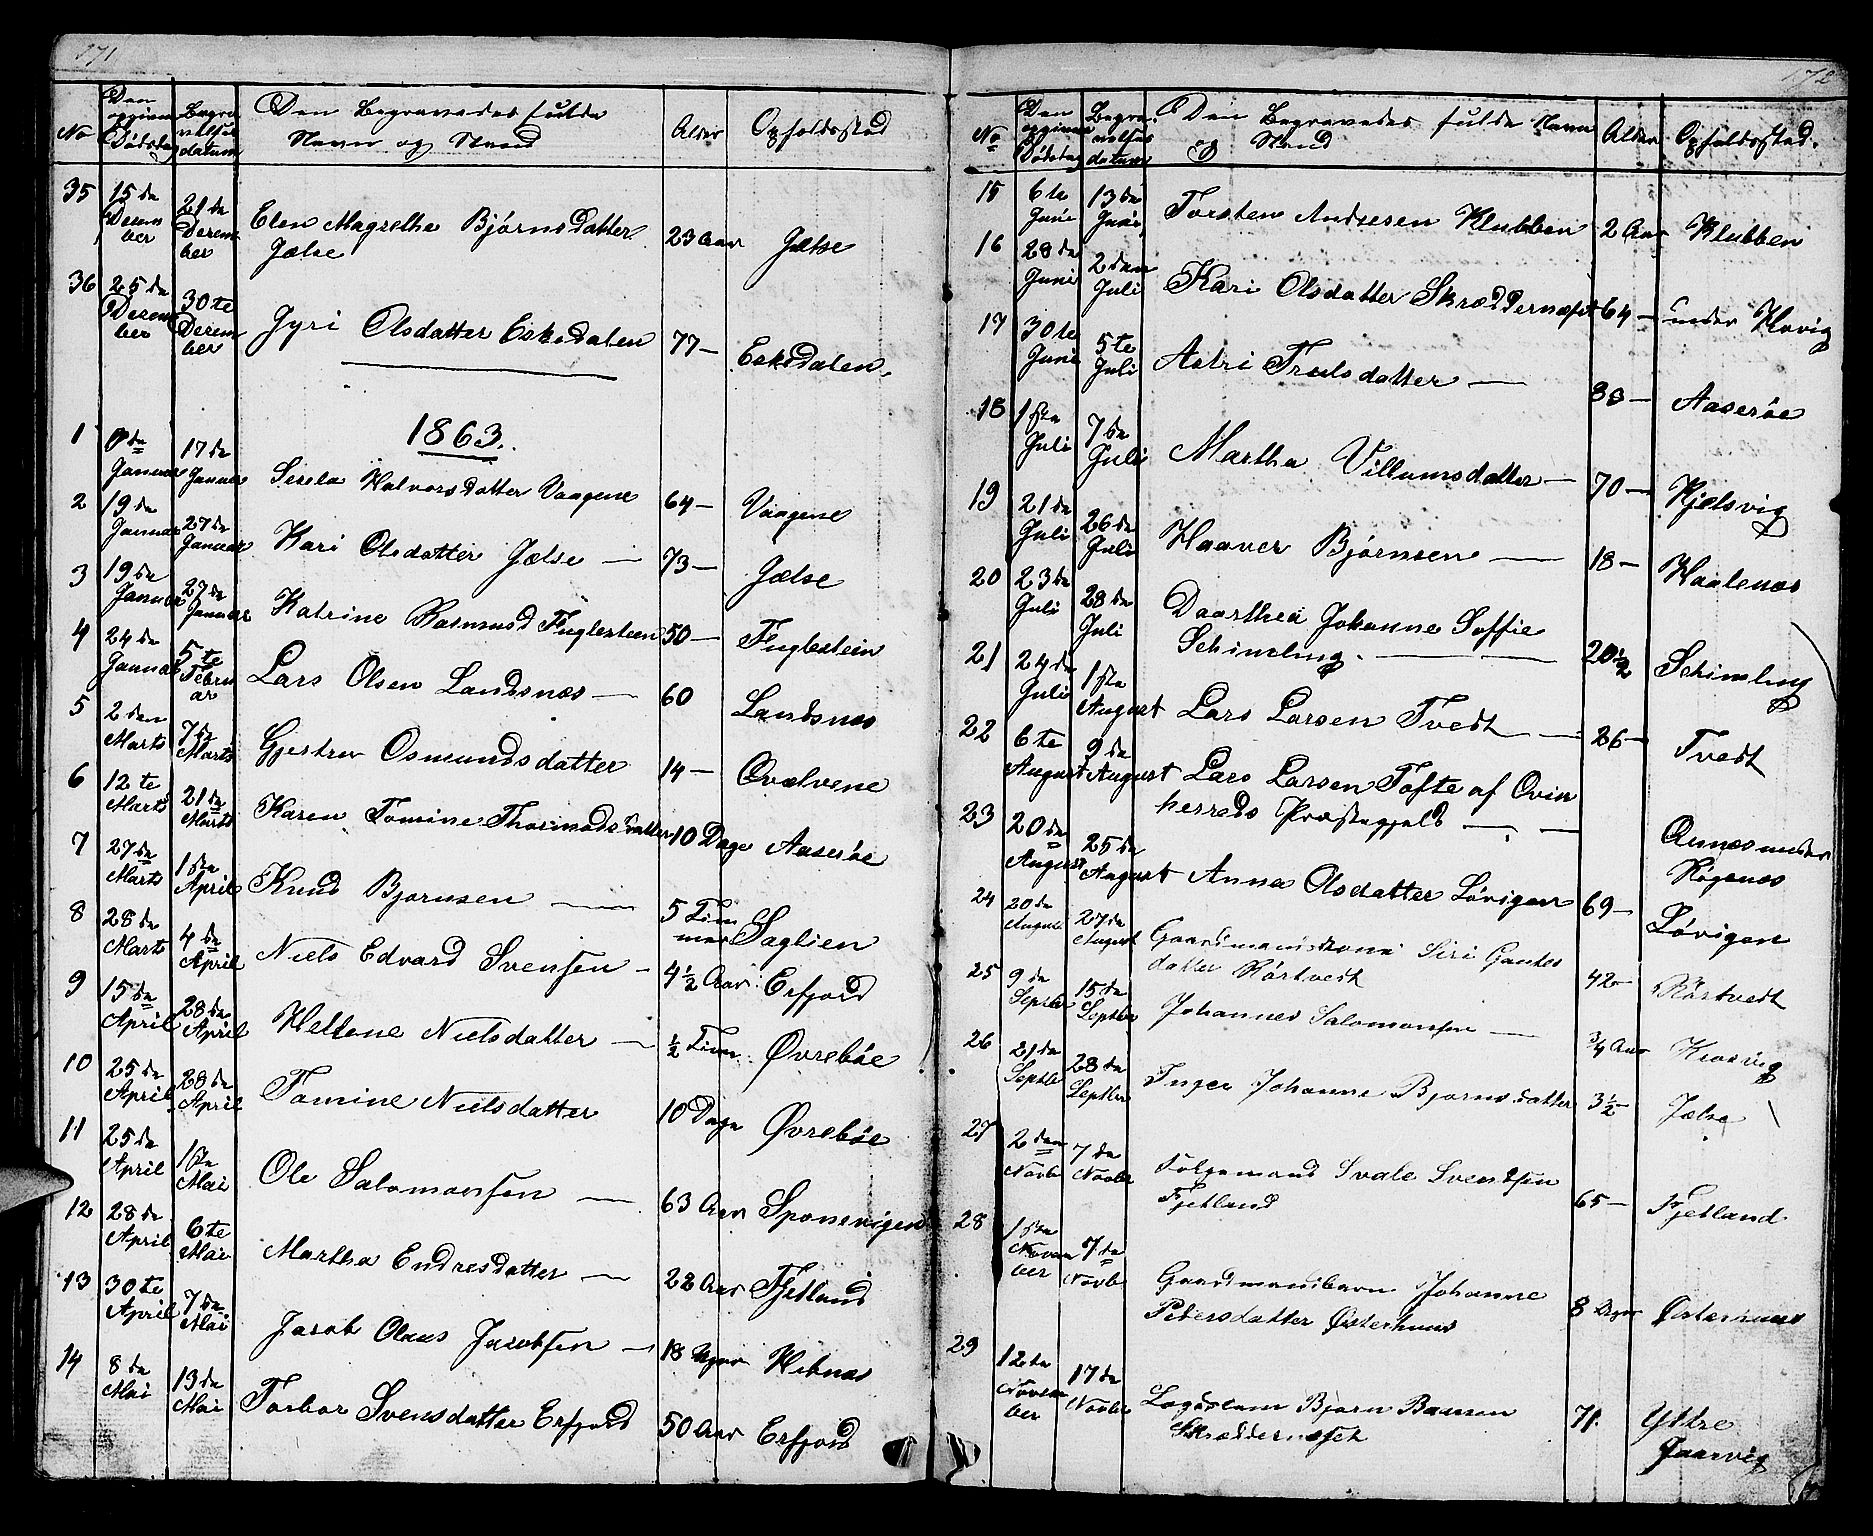 171
No
Den opgivne Dødsdag
Begravelses datum
Den Begravedes fulde Navn og Stand
Alder
Opholdsstad
35 15de December 21de December Elen Magrethe Bjørnsdatter Jælse 23 Aar Jælse
36 25de December 30te December Gyri Olsdatter Eskedalen 77 — Eskedalen.
1863.
1 17de Januar Sisela Halvorsdatter Vaagene 64 — Vaagene
2 19de Januar 27de Januar Kari Olsdatter Jælse — 73 — Jælse
3 19de Januar 27de Januar Katrine Rasmusd Fuglesteen 50 — Fuglestein
4 24de Januar 5te Februar Lars Olsen Landsnæs — 60 Landsnæs
5 2den Marts 7de Marts Gjestrev Osmundsdatter 14 — Qvælvene
6 12te Marts 21de Marts Karen Tomine Thormodsdatter 10 Dage Aaserøe
7 27de Marts 1ste April Knud Bjørnsen — 5 Timmer Saglien
8 28de Marts 4de April Niels Edvard Svensen — 4 1/2 Aar Erfjord
9 15de April 28de April Hellene Nielsdatter — 1/2 Tim. Øvrebøe
10 25de April 28de April Tomine Nielsdatter 10 Dage Øvrebøe
11 25de April 1ste Mai Ole Salomonsen — 63 Aar Sponevigen
12 28de April 6te Mai Martha Endresdatter — 22 Aar Fjetland
13 30te April 7de Mai Jacob Olaus Jacobsen — 18 Uger Hebnæs
14 8de Mai 13de Mai Torbor Svensdatter Erfjord 50 Aar Erfjord
172
No
Den opgivne Dødsdag
Begravelses datum
Den Begravedes fulde Navn & Stand
Alder
Opholdsstad.
15 6te Juni 13de Juni Torsten Andresen Klubben 2 Aar Klubben
16 28de Juni 2den Juli Kari Olsdatter Skræddernæset 64 — under Hovig
17 30te Juni 5te Juli Astri Trulsdatter — 80 — Aaserøe
18 1ste Juli 7de Juli Martha Villumsdatter — 70 — Kjølsvig
19 21de Juli 26de Juli Haaver Bjørnsen — 18 — Haalenæs
20 23de Juli 28de Juli Daarthea Johanne Soffie Schimeling. — 20 1/2 Schimeling
21 24de Juli 1ste August Lars Larsen Tvedt — 26 — Tvedt
22 6te August 9de August Lars Larsen Tofte af Qvinherreds Præstegjeld — under Røgenæs
23 20de August 25de August Anna Olsdatter Løvigen 69 — Løvigen
24 20de August 27de August Gaardmandskone Siri Gautesdatter Rørtvedt 42 — Rørtvedt
25 9de Septbr 15de Septbr Johannes Salomonsen — 3/4 Aar
26 21de Septbr 28de Septbr Inger Johanne Bjørnsdatter 3 1/2 — Jælse
27 2den Novbr 7de Novbr Folgemand Svale Svendsen Fjetland 65 — Fjetland
28 1ste November 7de Novbr Gaardmandsbarn Johanne Petersdatter Østerhuus 8 Dage Østerhuus
29 12te November 17de Novbr Lægdslem Bjørn Baarsen Skræddernæset 71. Ydtre Jaasvig